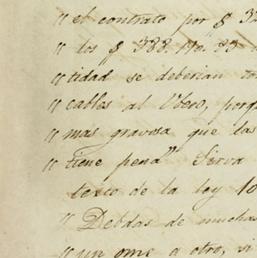 " el contrato por $ 32
" los $ 388.
" tidad se deberian
" cables al Vbero, porq
" mas gravosa que las
" tiene penda Sirva
texto de la ley 10
" Debdas de muchas
" un ome a otro, si